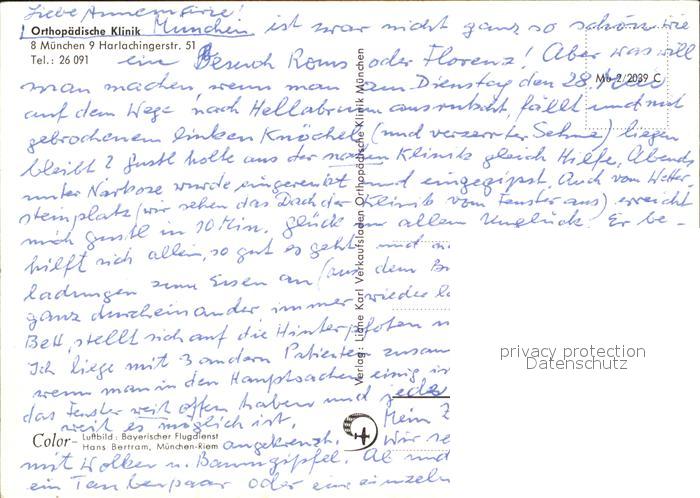 Liebe Annemarie!
Orthopädische Klinik München ist zwar nicht ganz so schön wie
8 München 9 Harlachingerstr. 51
Tel.: 26 091
ein Besuch Roms oder Florenz! Aber was will
Mü 2/2039 C
man machen, wenn man am Dienstag den 28.
auf dem Wege nach Hellabrunn ausrutscht, fällt und mit
gebrochenem linken Knöchel (und verzerrter Sehne) liegen
bleibt? Gustl holte aus der nahen Klinik gleich Hilfe, Abends
unter Narkose wurde eingerenkt und eingegipst. Auch vom Wetter-
steinplatz (wir sehen das Dach der Klinik vom Fenster aus) erreicht
mich Gustl in 10 Min. Glück im allem Unglück. Er be-
hilft sich allein, so gut es geht und
ladungen zum Essen an (aus dem
ganz durcheinander immer wieder
Bett, stellt sich auf die Hinterpfoten
Ich liege mit 3 andern Patienten
wenn man in den Hauptsachen einig
das Fenster weit offen haben und jeder
weit es möglich ist. Mein
Color- Luftbild: Bayerischer Flugdienst
Hans Bertram, München-Riem
angekreuzt. Wir
mit Wolken u. Baumgipfel. Ab und
ein Taubenpaar oder eine einzeln
Verlag: Liane Karl Verkaufsladen Orthopädische Klinik München
privacy protection
Datenschutz